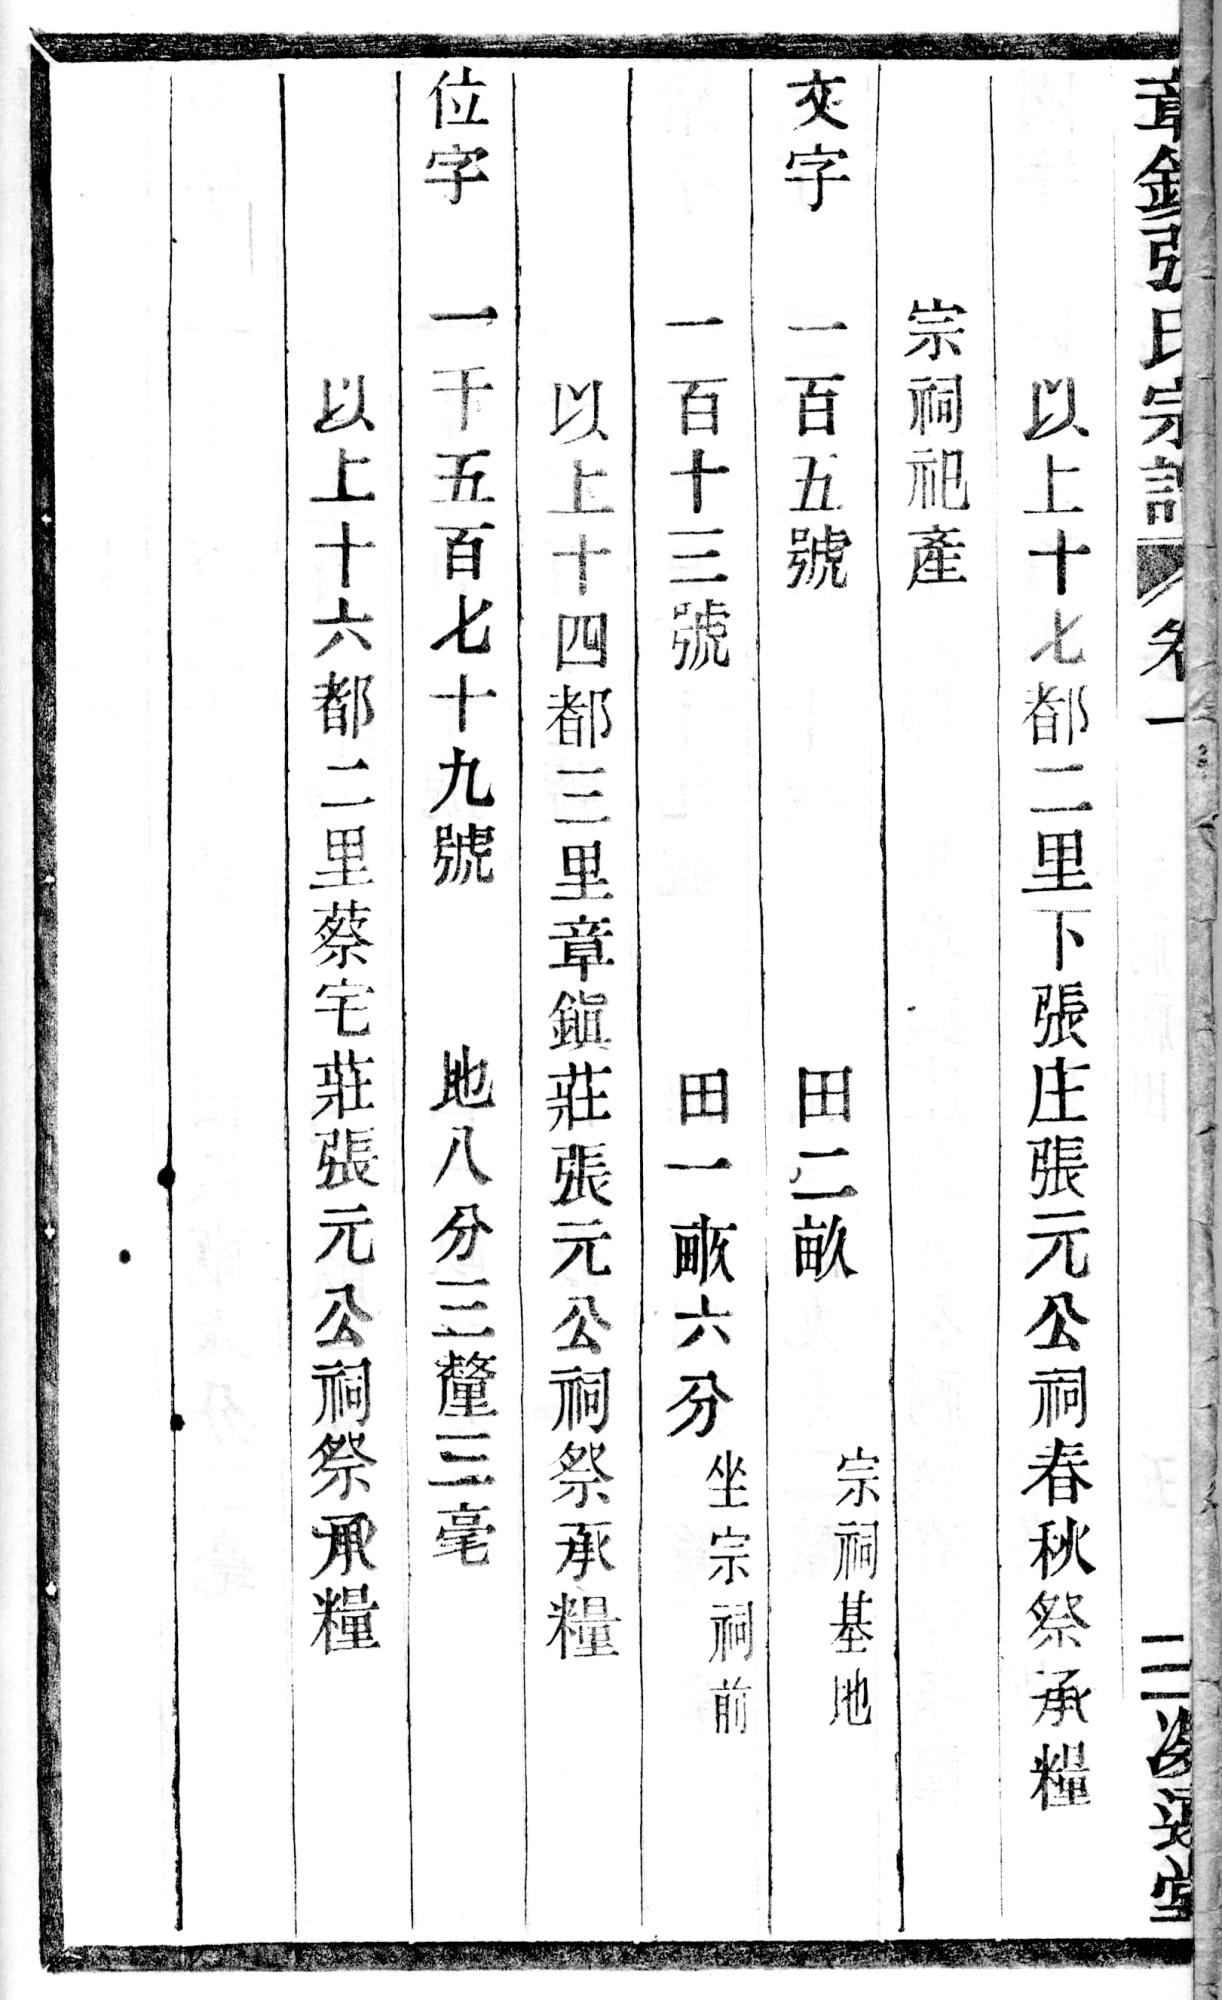 章鎮張氏宗譜 卷一 三
以上十七都二里下張庄張元公祠春秋祭承糧
宗祠祀產
文字 一百五號 田二畝 宗祠基地
一百十三號 田一畝六分 坐宗祠前
以上十四都三里章鎭莊張元公祠祭承糧
位字 一千五百七十九號 地八分三釐三毫
以上十六都二里蔡宅莊張元公祠祭承糧